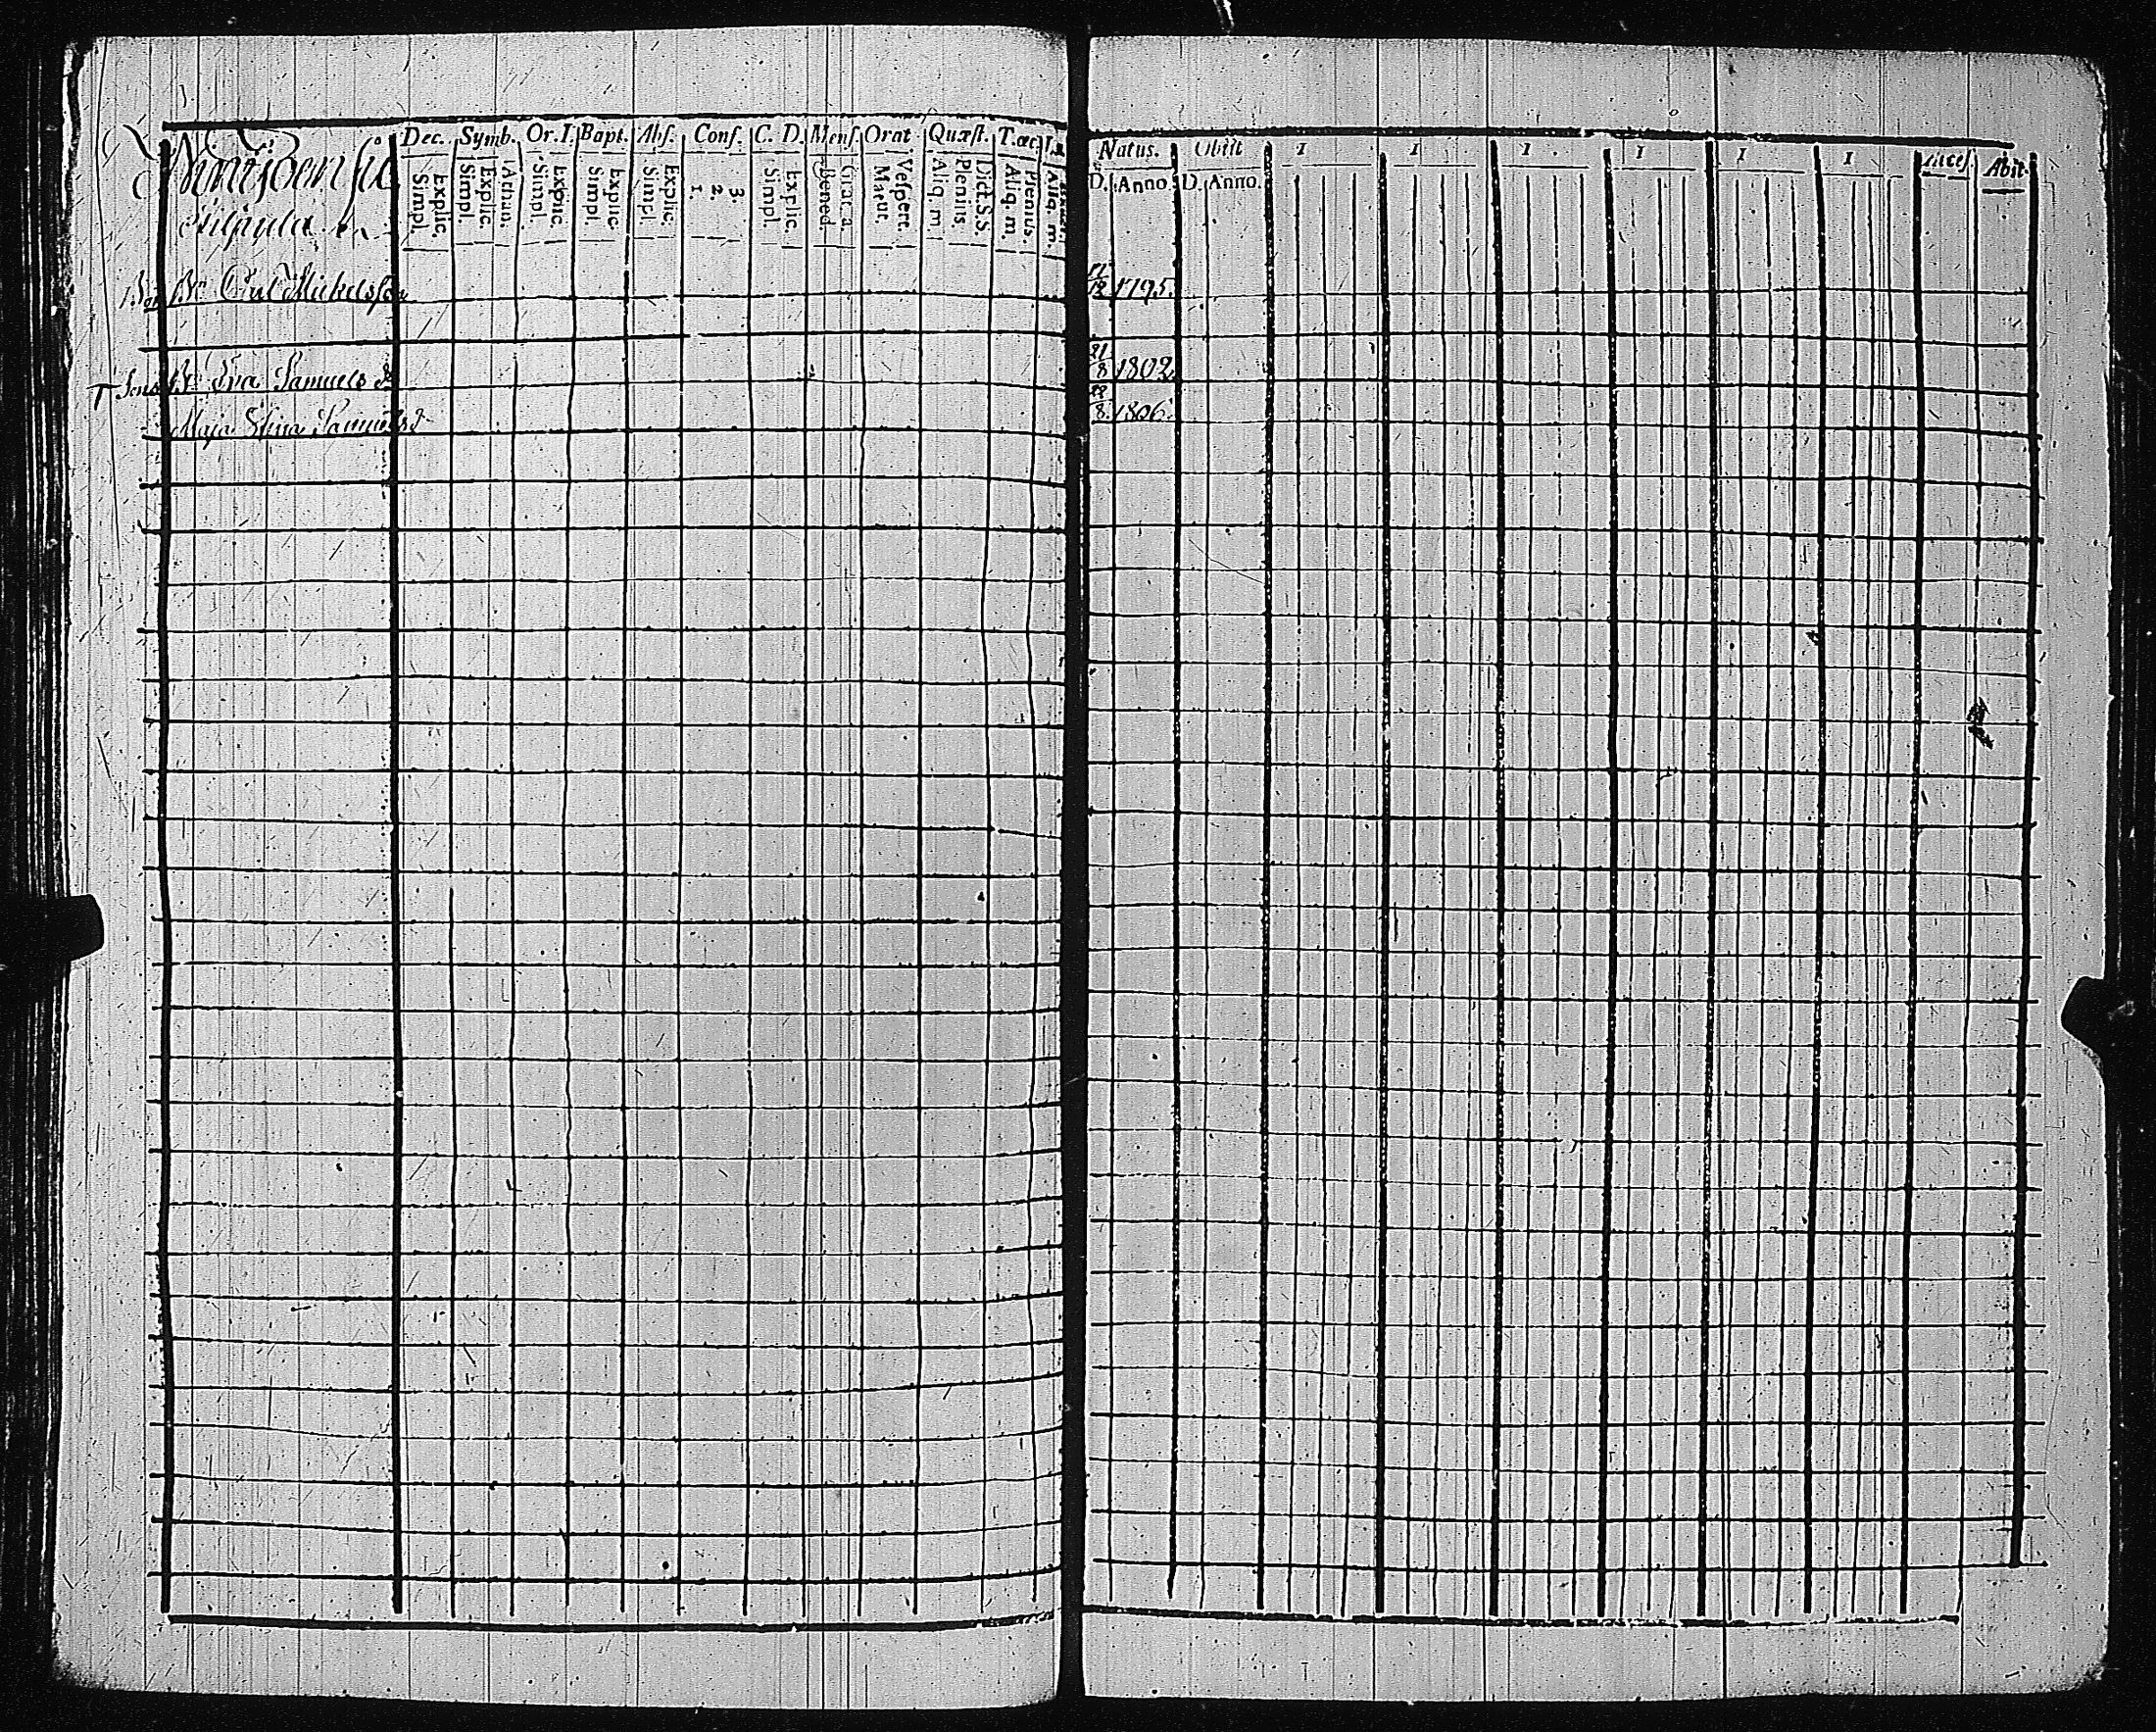 Dec. Symb. Or. I. Bapt. Abſ. Conf. C. D. Menſ. Orat Quæſt. T.œc.
Explic. Simpl. Athan. Explic. Simpl. Explic. Simpl. Explic. Simpl. Explic. Simpl. 3. 2. 1. Explic. Simpl. Grat. a. Bened. Veſpert. Matut. Dict. S.S. Plenius. Aliq. m Plenius. Aliq. m. Aliq. m.
Carl Mickelsson
Eva Samuels d
Maja Stina Samuels d
Natus. Obiit 1 1 1 1 1 1 Acceſ Abit.
D. Anno. D. Anno.
11/12 1795.
21/8 1802
28/8. 1806.